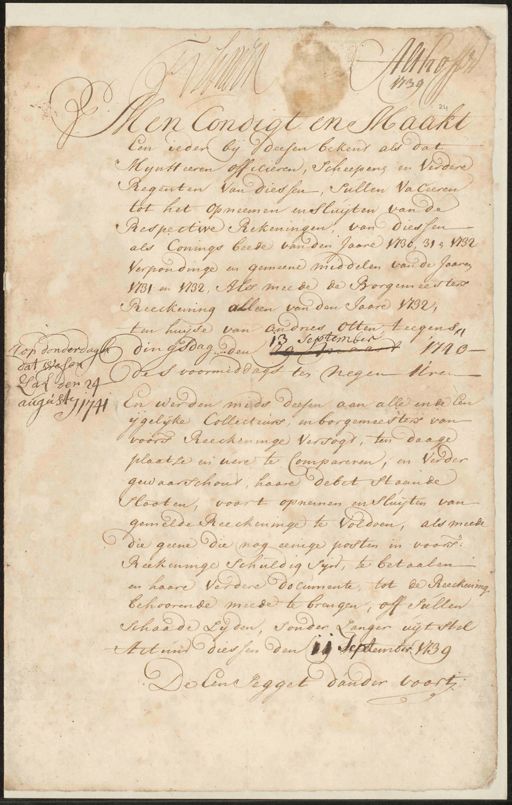 1739
24
Men Condigt en Maakt
Een ieder by deesen bekent als dat
Mynheeren officieren, Scheepens en Verdere
Regenten van diessen, Sullen Vaceeren
tot het opneemen en sluyten van de
Respective Rekeningen, van diessen
als Conings beede van den Jaare 1730, 31 1732
Verpondinge en gemeene middelen van de Jaaren
1731 en 1732, Als meede de Borgemeesters
Reeckening alleen van den Jaare 1732,
ten huijse van andries Otten, teegens
13 September
dingsdag den 1740
des voormiddaghs ten negen Uren
op donderdagh
dat wesen
Sal den 24
augusty 1741
En werden mids deesen aan alle ende Een
ygelyke Collecteurs, en borgemeesters van
voors Reeckeninge Versogt, ten daage
plaatse en uere te Compareren, en Verder
gewaarschout, haare debet staande
Slooten, voort opnemen en sluyten van
gemelde Reeckeninge te Voldoen, als meede
die geene die nog eenige posten in voors
Reekeninge Schuldig Syn, te betaalen
en haare Verdere documente, tot de Reeckening
behoorende meede te brengen, off Sullen
Schaade Leyden, Sonder Langer uytstel
Actum diessen den 11 September 1739
De Een Segget dander voort